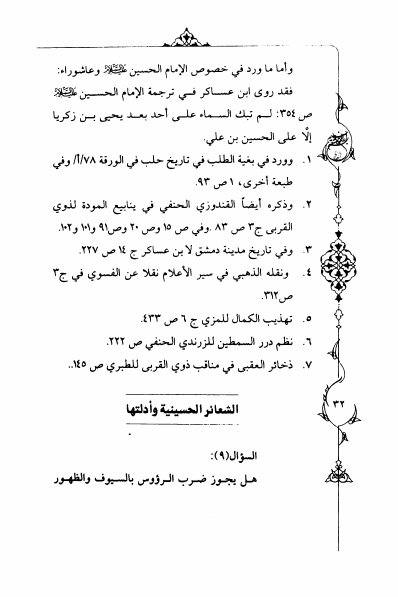 وأما ما ورد في خصوص الإمام الحسين عليه السلام وعاشوراء:
فقد روى ابن عساكر في ترجمة الإمام الحسين عليه السلام
ص ٣٥٤: لم تبك السماء على أحد بعد يحيى بن زكريا
إلّا على الحسين بن علي.
١. وورد في بغية الطلب في تاريخ حلب في الورقة ٧٨/أ/ وفي
طبعة أخرى، ١ ص ٩٣.
٢. وذكره أيضاً القندوزي الحنفي في ينابيع المودة لذوي
القربى ج٣ ص ٨٣ .وفي ص ١٥ وص ٢٠ وص٩١ و١٠١ و١٠٢.
٣. وفي تاريخ مدينة دمشق لا بن عساكر ج ١٤ ص ٢٢٧.
٤. ونقله الذهبي في سير الأعلام نقلا عن الفسوي في ج٣
ص٣١٢.
٥. تهذيب الكمال للمزي ج ٦ ص ٤٣٣.
٦. نظم درر السمطين للزرندي الحنفي ص ٢٢٢.
٧. ذخائر العقبى في مناقب ذوي القربى للطبري ص ١٤٥..
٣٢
الشعائر الحسينية وأدلتها
السؤال(٩):
هل يجوز ضرب الرؤوس بالسيوف والظهور